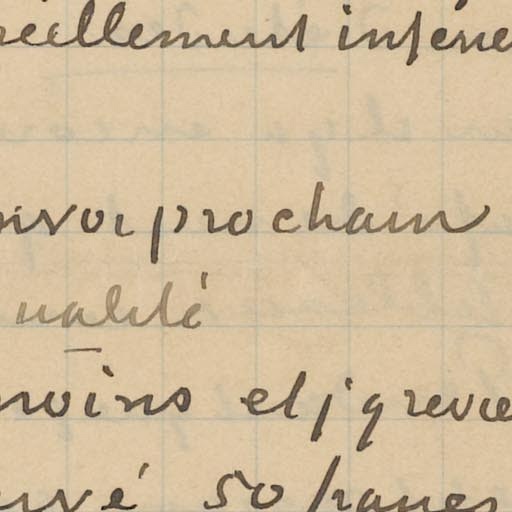 réellement inférie
nvoi prochain
ualité
moins et j'y revie
ervé 50 francs